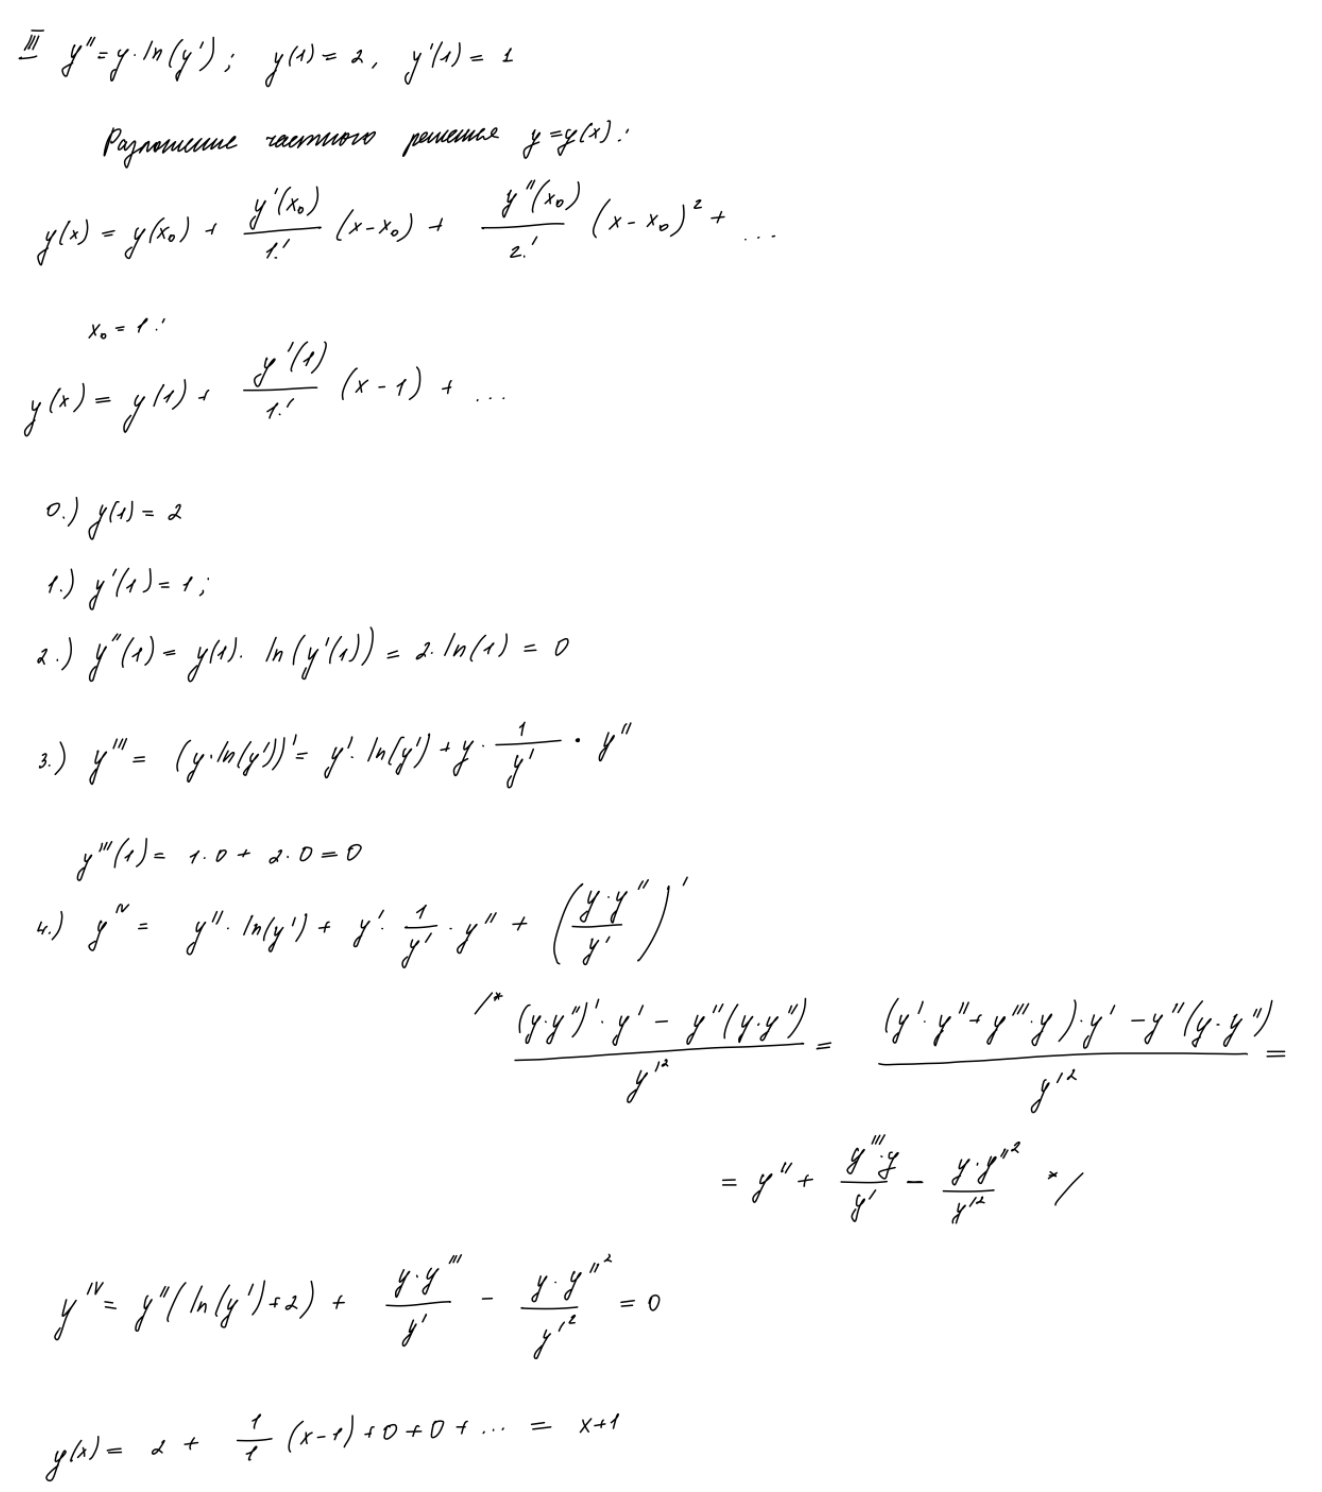 III y'' = y · ln(y'); y(1) = 2, y'(1) = 1
Разложение частного решения y = y(x):
y(x) = y(x₀) + y'(x₀)/1! (x - x₀) + y''(x₀)/2! (x - x₀)² + ...
x₀ = 1:
y(x) = y(1) + y'(1)/1! (x - 1) + ...
0.) y(1) = 2
1.) y'(1) = 1;
2.) y''(1) = y(1) · ln(y'(1)) = 2 · ln(1) = 0
3.) y''' = (y · ln(y'))' = y' · ln(y') + y · 1/y' · y''
y'''(1) = 1 · 0 + 2 · 0 = 0
4.) y^IV = y'' · ln(y') + y' · 1/y' · y'' + (y · y''/y')'
/* ((y · y'')' · y' - y''(y · y''))/y'² = ((y' · y'' + y''' · y) · y' - y''(y · y''))/y'² =
= y'' + y''' · y/y' - y · y''²/y'² */
y^IV = y''(ln(y') + 2) + y · y'''/y' - y · y''²/y'² = 0
y(x) = 2 + 1/1 (x - 1) + 0 + 0 + ... = x + 1